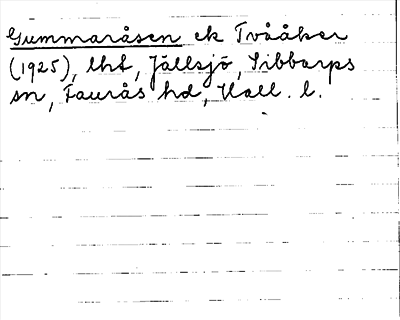 Gummaråsen ek Tvååker
(1925), lht, Jällsjö, Sibbarps
sn, Faurås hd, Hall. l.